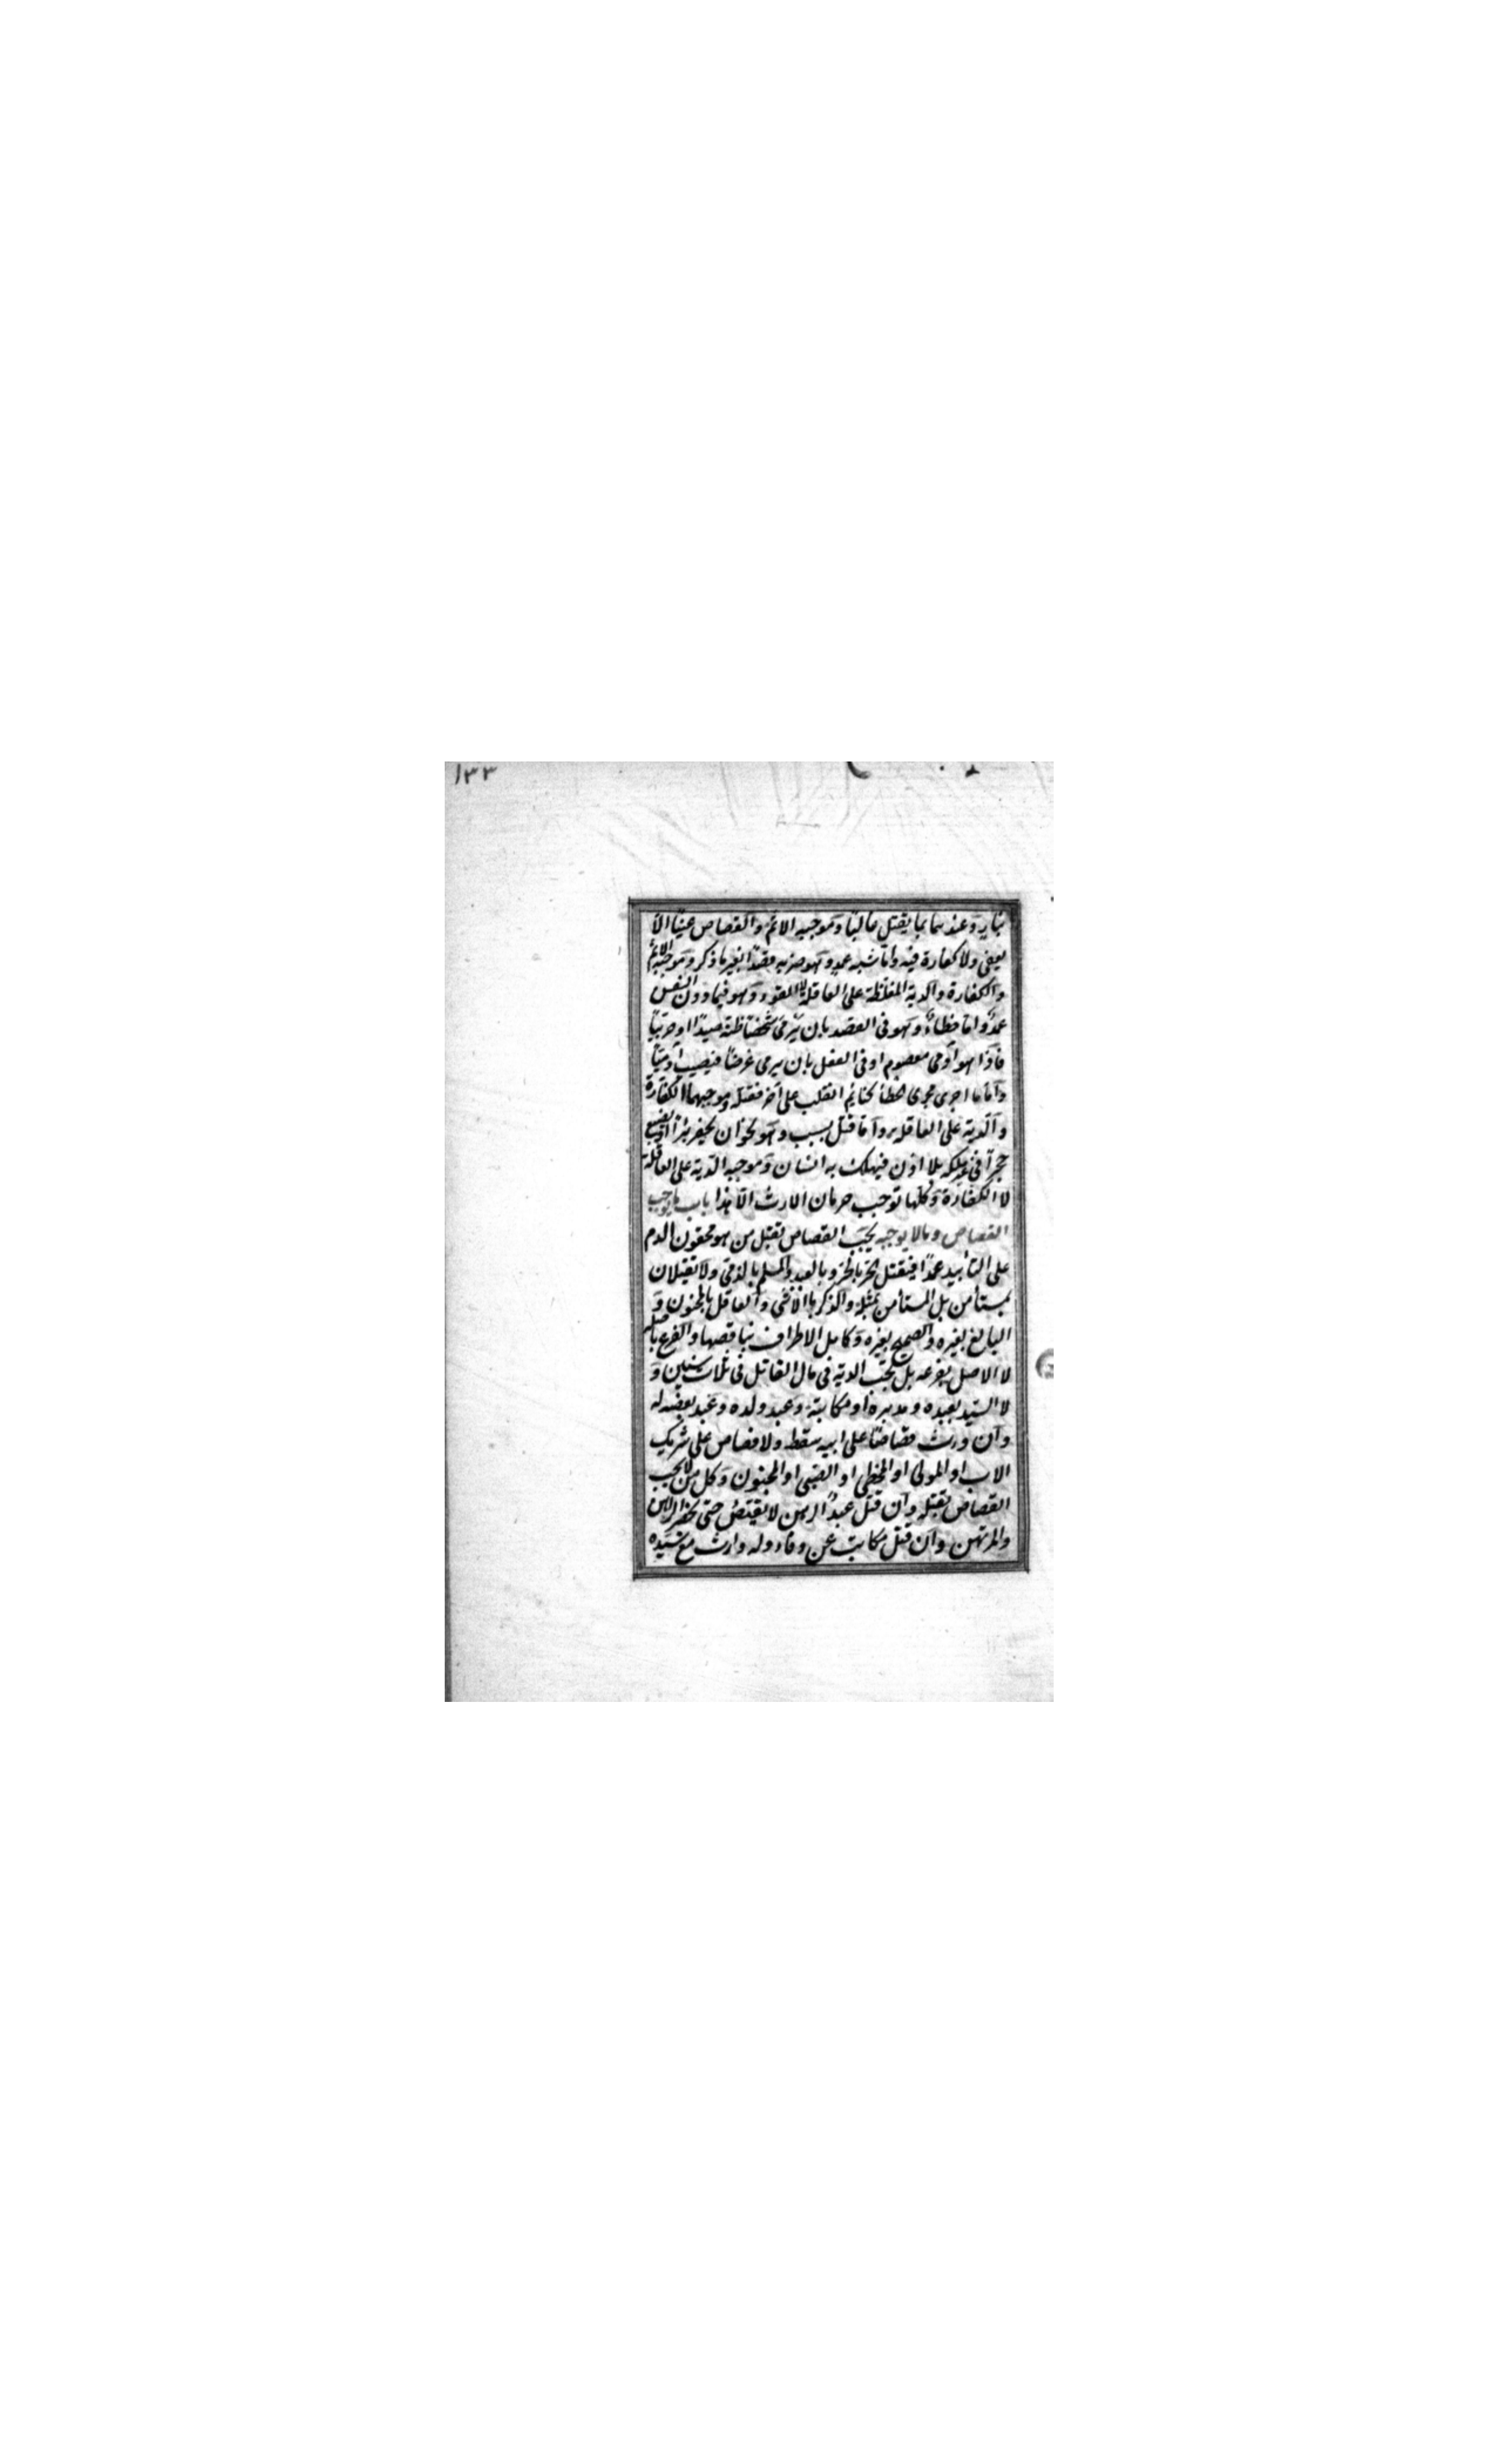 ١٣٣
بنار وعندهما بما يقتل غالبا وموجبه الاثم والقصاص عينا الا
يعفى ولا كفارة فيه واما شبه عمد وهو ضربه قصدا بغير ما ذكر وموجبه الاثم
والكفارة والدية المغلظة على العاقلة لا القود وهو فيما دون النفس
عمد واما خطاء وهو فى القصد بان يرمى شخصا ظنه صيدا او حربيا
فاذا هو آدمى معصوم او فى الفعل بان يرمى غرضا فيصيب آدميا
واما ما اجرى مجرى الخطأ كنايم انقلب على آخر فقتله وموجبهما الكفارة
والدية على العاقلة واما قتل بسبب وهو نحو ان يحفر بئرا او يضع
حجرا فى غير ملكه بلا اذن فيهلك به انسان وموجبه الدية على العاقلة
لا الكفارة وكلها توجب حرمان الارث الا هذا باب ما يوجب
القصاص وما لا يوجبه يجب القصاص بقتل من هو محقون الدم
على التأبيد عمدا فيقتل الحر بالحر وبالعبد والمسلم بالذمى ولا يقتلان
بمستأمن بل المستأمن بمثله والذكر بالانثى والعاقل بالمجنون و
البالغ بغيره والصحيح بغيره وكامل الاطراف بناقصها والفرع باصله
لا الاصل بفرعه بل تجب الدية فى مال القاتل فى ثلاث سنين و
لا السيد بعبده ومدبره او مكاتبه وعبد ولده وعبد بعضه له
وان ورث قصاصا على ابيه سقط ولا قصاص على شريك
الاب او المولى او المخطى او الصبى او المجنون وكل من لا يجب
القصاص بقتله وان قتل عبد الرهن لا يقتص حتى يحضر الراهن
والمرتهن وان قتل مكاتب عن وفاء وله وارث مع سيده